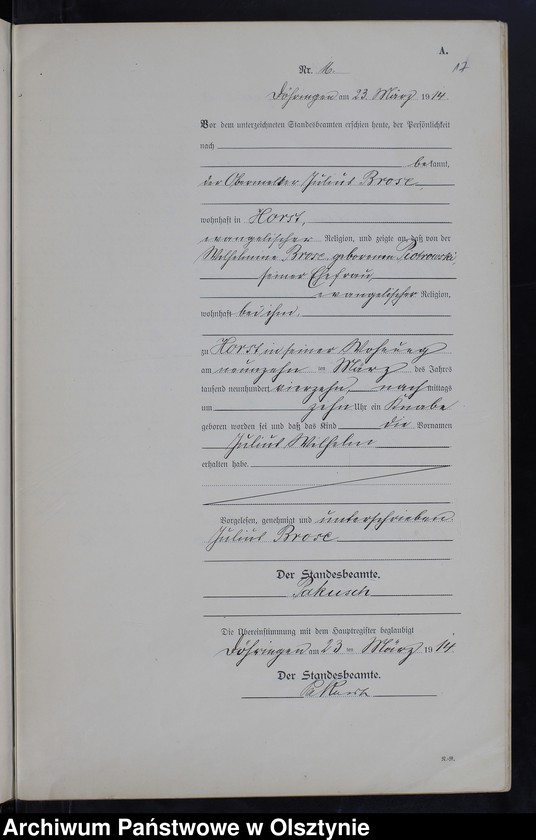 A.
17
Nr. 16.
Döhringen am 23. März 1914.
Vor dem unterzeichneten Standesbeamten erschien heute, der Persönlichkeit
nach
bekannt,
der Obermelker Julius Brose,
wohnhaft in Horst,
evangelischer Religion, und zeigte an, daß von der
Wilhelmine Brose geborenen Piotrowski,
seiner Ehefrau,
evangelischer Religion,
wohnhaft bei ihm,
zu Horst in seiner Wohnung
am neunzehn ten März des Jahres
tausend neunhundert vierzehn nach mittags
um zehn Uhr ein Knabe
geboren worden sei und daß das Kind die Vornamen
Julius Wilhelm
erhalten habe.
Vorgelesen, genehmigt und unterschrieben.
Julius Brose
Der Standesbeamte.
Pakusch
Die Übereinstimmung mit dem Hauptregister beglaubigt
Döhringen am 23 ten März 1914.
Der Standesbeamte.
Pakusch
Archiwum Państwowe w Olsztynie